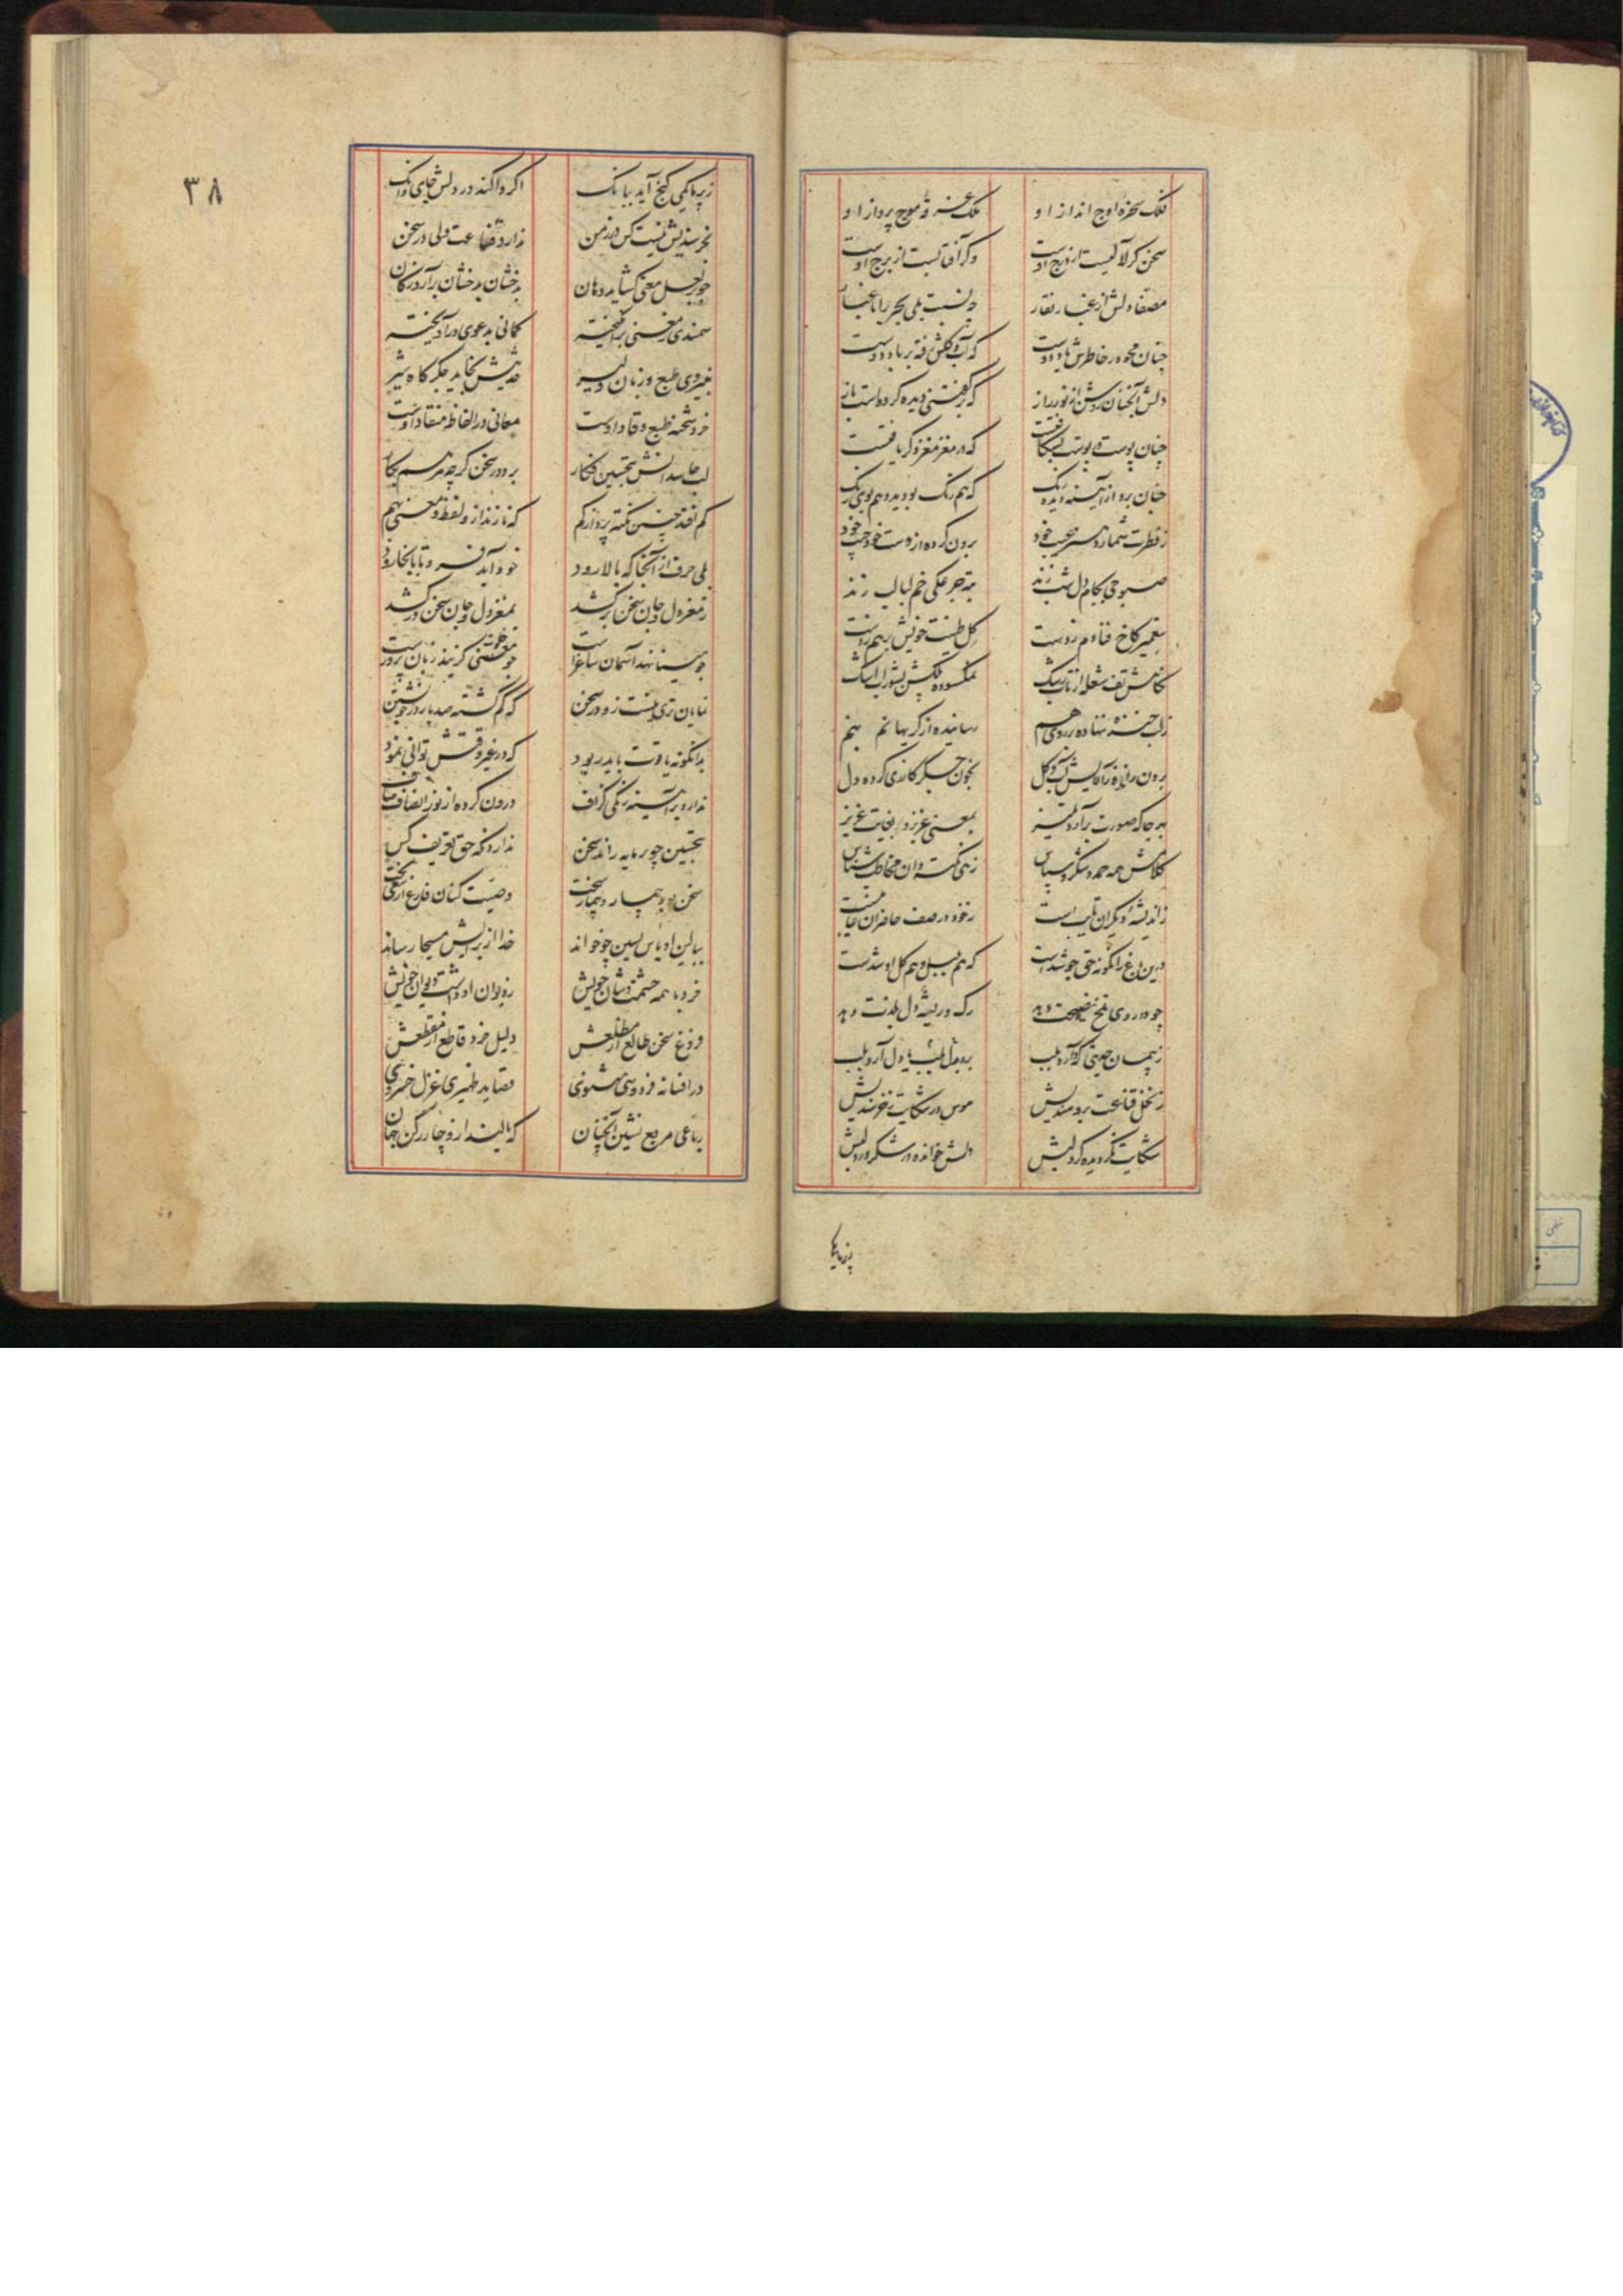 فلک سخره اوج انداز او
ملک غرقه موج پرواز او
سخن کر لآلیست از درج اوست
وکر آفتابست از برج اوست
مصفا دلش از غبار نقار
چه نسبت بلی بحر را با غبار
چنان محو در خاطرش یاد دوست
که آب و کلش رفته بر باد دوست
دلش آنچنان روشن از نور راز
که بر کفتنی دیده کرده است باز
چنان پوست بر پوست بشکافتست
که در مغز مغز دکر یافتست
چنان برد از آینه دیده رنک
که هم رنک بو دید و هم بوی رنک
ز فطرت شمارد هنر عیب خود
برون کرده از دست خود جیب خود
صبوحی بکام دل شب زند
به جرعکی خم لبالب زند
بتعمیر کاخ فنا دم زدست
کل طینت خویش برهم زدست
نکاهش تف شعله از تاب رشک
نمکسوده پلکش بشوراب اشک
ز لب خنده ننهاده بر روی هم
رسانیده از کریها نم بنم
برون رانده ز آلایش آب و کل
بخون جکر کازری کرده دل
بهر جا که صورت برآرد تمیز
بمعنی عزیز و بغایت عزیز
کلامش همه حمد و شکر و سپاس
زهی نکته دان مخاطب شناس
ز اندیشه دیکران تایب است
ز خود در صف حاضران غایبست
درین باغ زانکونه حق جو شدست
که هم بلبل و هم کل او شدست
چو داروی تلخ نصیحت دهد
رک و ریشه دل بلذت دهد
ز پیمان حدیثی که آرد بلب
بدنبال لب پای دل آرد بلب
ز نخل قناعت برومندیش
هوس در شکایت ز خرسندیش
شکایت نکردیده کرد لبش
دلش خوانده در شکر ورد لبش
اکر واکند در دلش جای دانک
نخرسندیش نیست کس در زمن
ندارد قناعت ولی در سخن
چو لعل معنی کشاید دهان
بدخشان بدخشان برآرد ز کان
سمندی ز معنی برانکیخته
کمانی بدعوی درآویخته
بنیروی طبع و زبان دلیر
حدیثش نخاید جکر کاه شیر
خرد شحنه طبع وقاد اوست
معانی در الفاظ منقاد اوست
لب حاسدانش بتحسین فکار
برد در سخن کر چه مرهم بکار
کم افتد چنین نکته پرداز کم
که نازند از و لفظ و معنی بهم
بلی حرف از آنجا که بالا رود
خود آید فرو تا باینجا رود
ز مغز دل و جان سخن برکشد
بمغز دل و جان سخن درکشد
چو مینا نهد آسمان ساغر است
چو معنی کزیند زبان پرور است
نمایان تری نیست زو در سخن
که کم کشته صد بار در خویشتن
بدانکونه یاقوت باید ربود
که در غیر وقتش توانی نمود
ندارد بر آیینه زنکی کزاف
درون کرده از نور انصاف صاف
بتحسین چو بر مایه راند سخن
ندارد نکه حق تعریف کس
ببالین او یاس یسین چو خواند
خدا از برایش مسیحا رساند
خرد با همه حشمت و شان خویش
ز دیوان او داشت دیوان خویش
فروغ سخن طالع از مطلعش
دلیل خرد قاطع از مقطعش
در افسانه فردوسی مثنوی
قصاید ظهیری غزل خسروی
رباعی مربع نشین آنچنان
۳۸